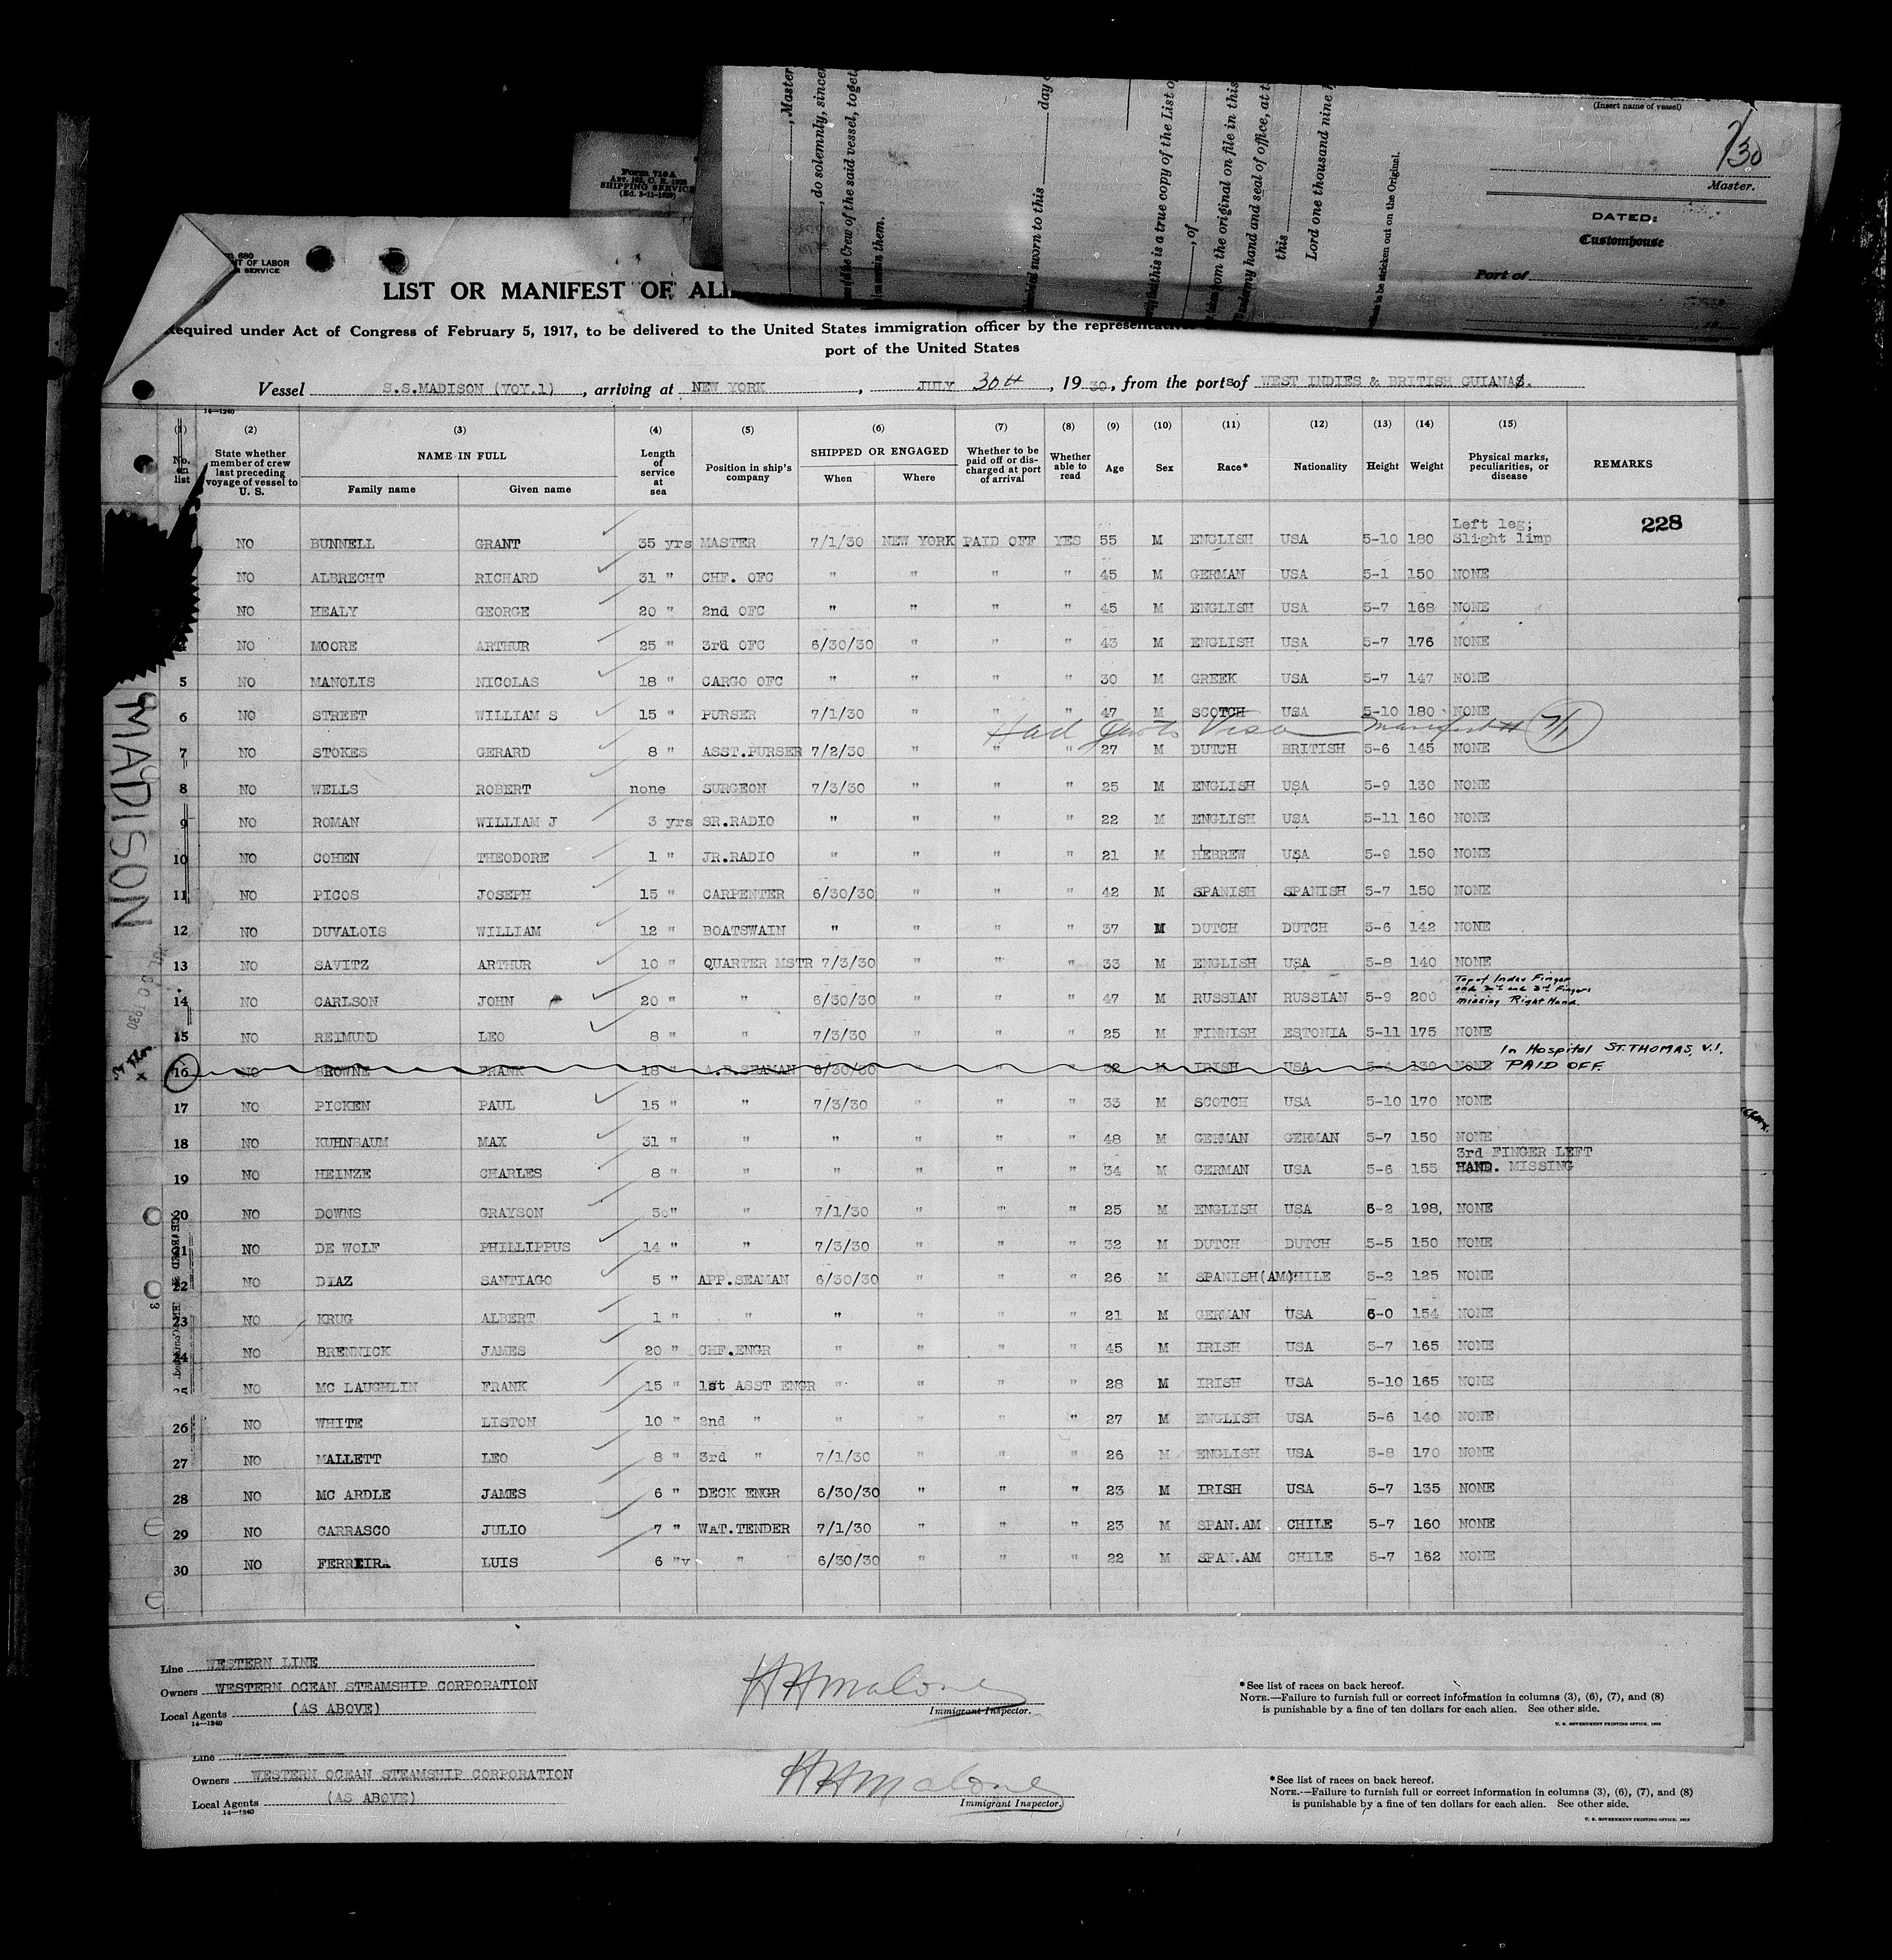 , Master
, do solemnly, sincer
of the Crew of the said vessel, toget
them.
sworn to this day o
this is a true copy of the List o
, of
from the original on file in this
my hand and seal of office, at t
this
Lord one thousand nine h
to be stricken out on the Original.
(Insert name of vessel)
7/30
Master.
DATED:
Customhouse
Port of
Form 710A
Art. 163, C. R. 1923
SHIPPING SERVICE
680
T OF LABOR
SERVICE
LIST OR MANIFEST OF ALI
Required under Act of Congress of February 5, 1917, to be delivered to the United States immigration officer by the representative
port of the United States
Vessel S.S.MADISON (VOY.1), arriving at NEW YORK, JULY 30th, 19 30, from the ports of WEST INDIES & BRITISH GUIANAS.
14—1240
(1) (2) (3) (4) (5) (6) (7) (8) (9) (10) (11) (12) (13) (14) (15)
No. on list State whether member of crew last preceding voyage of vessel to U. S. NAME IN FULL Length of service at sea Position in ship's company SHIPPED OR ENGAGED Whether to be paid off or discharged at port of arrival Whether able to read Age Sex Race* Nationality Height Weight Physical marks, peculiarities, or disease REMARKS
Family name Given name When Where
228
NO BUNNELL GRANT 35 yrs MASTER 7/1/30 NEW YORK PAID OFF YES 55 M ENGLISH USA 5-10 180 Left leg; Slight limp
NO ALBRECHT RICHARD 31 " CHF. OFC " " " " 45 M GERMAN USA 5-1 150 NONE
NO HEALY GEORGE 20 " 2nd OFC " " " " 45 M ENGLISH USA 5-7 168 NONE
4 NO MOORE ARTHUR 25 " 3rd OFC 6/30/30 " " " 43 M ENGLISH USA 5-7 176 NONE
5 NO MANOLIS NICOLAS 18 " CARGO OFC " " " " 30 M GREEK USA 5-7 147 NONE
6 NO STREET WILLIAM S 15 " PURSER 7/1/30 " " " 47 M SCOTCH USA 5-10 180 NONE
Had Quota Visa Manifest # 7/1
7 NO STOKES GERARD 8 " ASST.PURSER 7/2/30 " " " 27 M DUTCH BRITISH 5-6 145 NONE
8 NO WELLS ROBERT none SURGEON 7/3/30 " " " 25 M ENGLISH USA 5-9 130 NONE
9 NO ROMAN WILLIAM J 3 yrs SR.RADIO " " " " 22 M ENGLISH USA 5-11 160 NONE
10 NO COHEN THEODORE 1 " JR.RADIO " " " " 21 M HEBREW USA 5-9 150 NONE
11 NO PICOS JOSEPH 15 " CARPENTER 6/30/30 " " " 42 M SPANISH SPANISH 5-7 150 NONE
12 NO DUVALOIS WILLIAM 12 " BOATSWAIN " " " " 37 M DUTCH DUTCH 5-6 142 NONE
13 NO SAVITZ ARTHUR 10 " QUARTER MSTR 7/3/30 " " " 33 M ENGLISH USA 5-8 140 NONE
14 NO CARLSON JOHN 20 " " 6/30/30 " " " 47 M RUSSIAN RUSSIAN 5-9 200 Top of Index Finger and 2nd and 3rd Fingers missing Right Hand.
15 NO REIMUND LEO 8 " " 7/3/30 " " " 25 M FINNISH ESTONIA 5-11 175 NONE
16 NO BROWNE FRANK 18 " A.B.SEAMAN 6/30/30 32 M IRISH USA 5-4 130 NONE In Hospital ST. THOMAS, V.I. PAID OFF.
17 NO PICKEN PAUL 15 " " 7/3/30 " " " 33 M SCOTCH USA 5-10 170 NONE
18 NO KUHNBAUM MAX 31 " " " " " " 48 M GERMAN GERMAN 5-7 150 NONE
19 NO HEINZE CHARLES 8 " " " " " " 34 M GERMAN USA 5-6 155 3rd FINGER LEFT HAND. MISSING
20 NO DOWNS GRAYSON 5 " " 7/1/30 " " " 25 M ENGLISH USA 6-2 198, NONE
21 NO DE WOLF PHILLIPPUS 14 " " 7/3/30 " " " 32 M DUTCH DUTCH 5-5 150 NONE
22 NO DIAZ SANTIAGO 5 " APP.SEAMAN 6/30/30 " " " 26 M SPANISH(AM) CHILE 5-2 125 NONE
23 NO KRUG ALBERT 1 " " " " " " 21 M GERMAN USA 6-0 154 NONE
24 NO BRENNICK JAMES 20 " CHF.ENGR " " " " 45 M IRISH USA 5-7 165 NONE
25 NO MC LAUGHLIN FRANK 15 " 1st ASST ENGR " " " " 28 M IRISH USA 5-10 165 NONE
26 NO WHITE LISTON 10 " 2nd " " " " " 27 M ENGLISH USA 5-6 140 NONE
27 NO MALLETT LEO 8 " 3rd " 7/1/30 " " " 26 M ENGLISH USA 5-8 170 NONE
28 NO MC ARDLE JAMES 6 " DECK ENGR 6/30/30 " " " 23 M IRISH USA 5-7 135 NONE
29 NO CARRASCO JULIO 7 " WAT.TENDER 7/1/30 " " " 23 M SPAN.AM CHILE 5-7 160 NONE
30 NO FERREIRA LUIS 6 " " 6/30/30 " " " 22 M SPAN.AM CHILE 5-7 162 NONE
MADISON
Line WESTERN LINE
Owners WESTERN OCEAN STEAMSHIP CORPORATION
Local Agents (AS ABOVE)
14—1240
HHMalone
Immigrant Inspector.
*See list of races on back hereof.
NOTE.—Failure to furnish full or correct information in columns (3), (6), (7), and (8)
is punishable by a fine of ten dollars for each alien. See other side.
U. S. GOVERNMENT PRINTING OFFICE. 1929
Line
Owners WESTERN OCEAN STEAMSHIP CORPORATION
Local Agents (AS ABOVE)
14—1240
HHMalone
Immigrant Inspector.
*See list of races on back hereof.
NOTE.—Failure to furnish full or correct information in columns (3), (6), (7), and (8)
is punishable by a fine of ten dollars for each alien. See other side.
U. S. GOVERNMENT PRINTING OFFICE. 1929